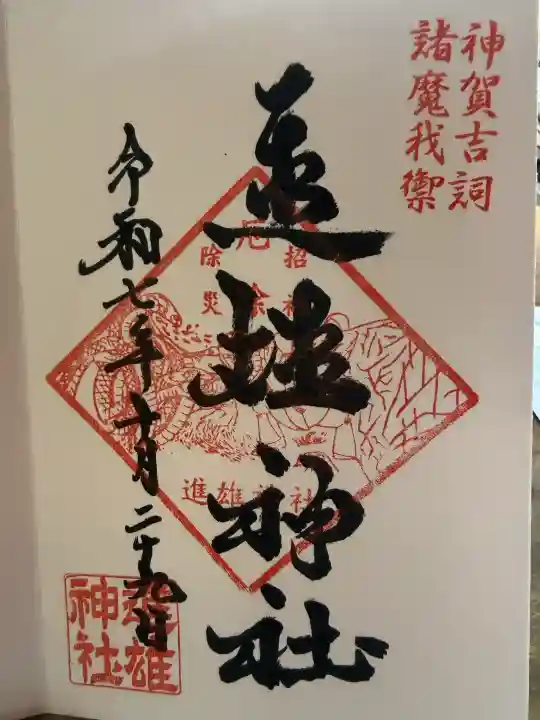 神賀吉詞
諸魔我禦
進雄神社
招福
厄除
除災
進雄神社
令和七年十月二十九日
進雄神社